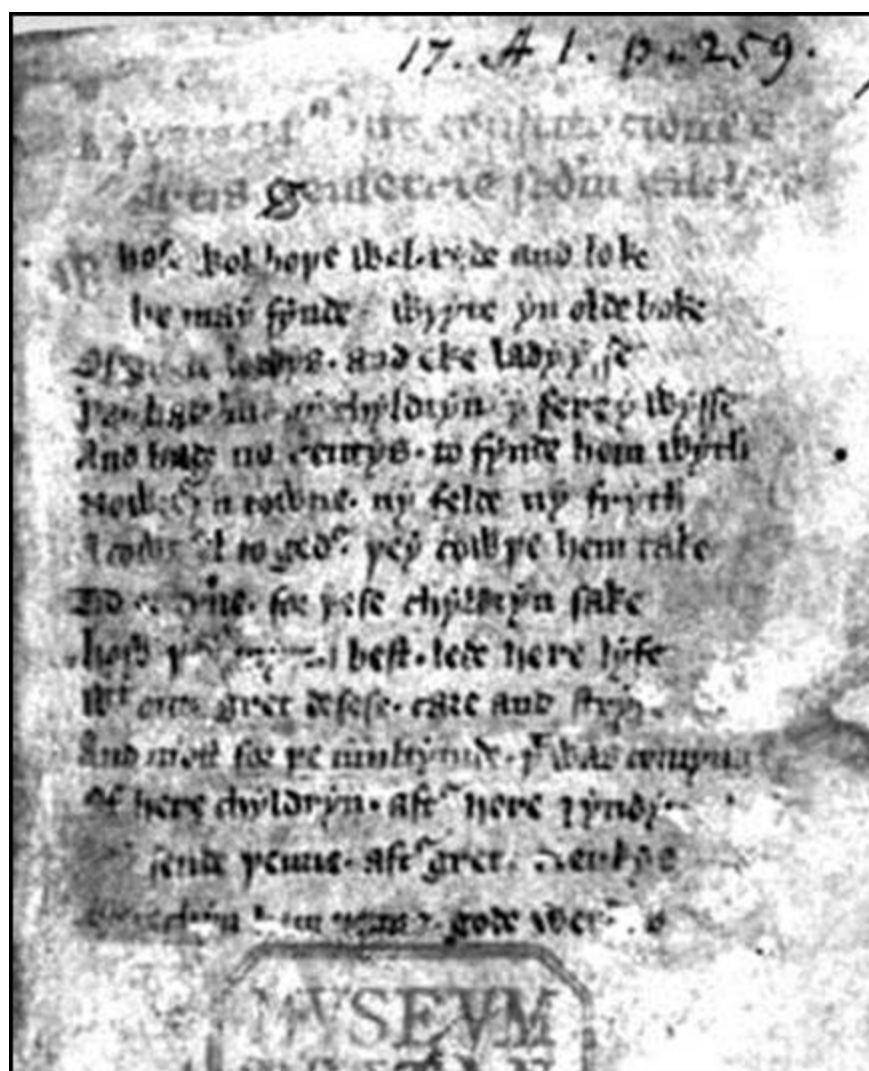 17. A 1. p. 259.
constituciones
artis gemetrie secdm
Whose wol boþe wel rede and loke
he may fynde wryte yn olde boke
Of grete lordys. and eke ladyysse
þat hade chyldryn y fere y wysse
And hade no rentys. to fynde hem wyth
Nowþer yn towne. ny felde ny fryth
A cownsel to geder þey cowþe hem take
To ordeyne. for þese chyldryn sake
how þey best. lede here lyfe
Wt oute gret desese. care and stryfe
And most for þe multytude. þt was comynge
Of here chyldryn. after here ȝyndynge
sende þenne. after grete clerkys
techyn hem þenne. gode werkys
MVSEVM